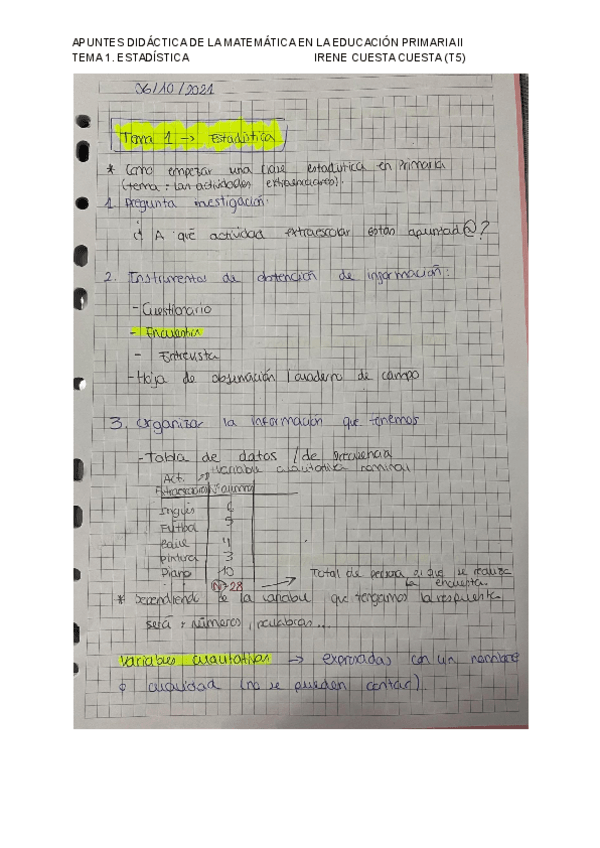 APUNTES DIDÁCTICA DE LA MATEMÁTICA EN LA EDUCACIÓN PRIMARIA II
TEMA 1. ESTADÍSTICA IRENE CUESTA CUESTA (T5)
06/10/2021
Tema 1 → Estadística
* Como empezar una clase estadística en Primaria
(tema: las actividades extraescolares).
1. Pregunta investigación:
¿A qué actividad extraescolar están apuntad@?
2. Instrumentos de obtención de información:
- Cuestionario
- Encuesta
- Entrevista
- Hoja de observación / cuaderno de campo
3. Organizar la información que tenemos
- Tabla de datos / de frecuencia
Act. → variable cualitativa nominal
Extraescolar Nº alumno
Inglés 6
Fútbol 5
Baile 4
Pintura 3
Piano 10
N=28 → Total de persona al que se realiza
la encuesta.
* Dependiendo de la variable que tengamos la respuesta
será: números, palabras...
Variables cualitativas → expresadas con un nombre
o cualidad (no se pueden contar).